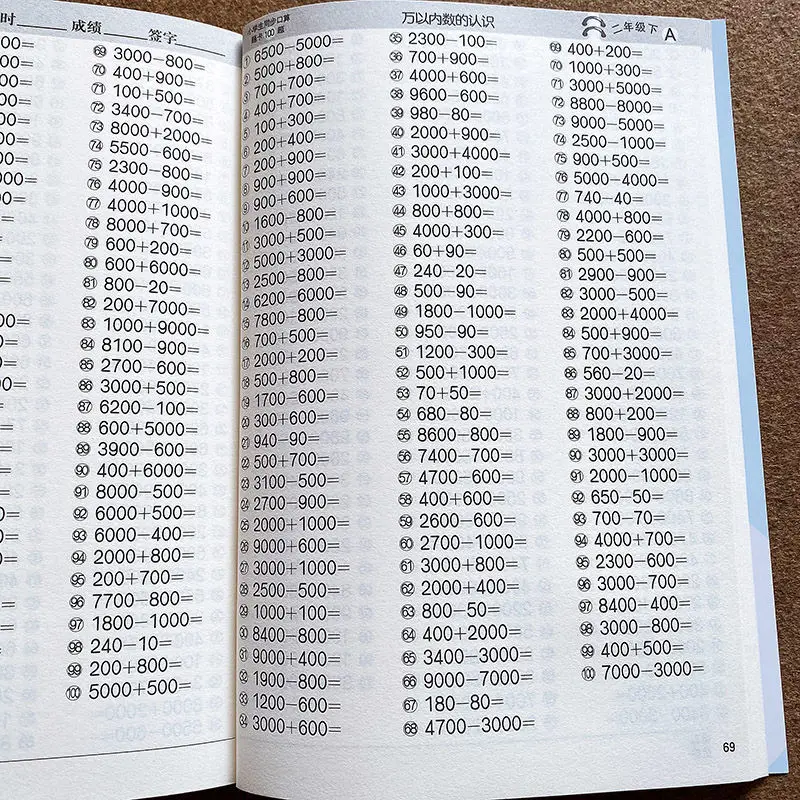 时____成绩____签字____
㊾ 3000−800=
⑦⓪ 400+900=
⑦① 100+500=
⑦② 3400−700=
⑦③ 8000+2000=
⑦④ 5500−600=
⑦⑤ 2300−800=
⑦⑥ 4000−900=
⑦⑦ 4000+1000=
⑦⑧ 8000+700=
⑦⑨ 600+200=
⑧⓪ 600+6000=
⑧① 800−20=
⑧② 200+7000=
⑧③ 1000+9000=
⑧④ 8100−900=
⑧⑤ 2700−600=
⑧⑥ 3000+500=
⑧⑦ 6200−100=
⑧⑧ 600+5000=
⑧⑨ 3900−600=
⑨⓪ 400+6000=
⑨① 8000−500=
⑨② 6000+500=
⑨③ 6000−400=
⑨④ 2000+800=
⑨⑤ 200+700=
⑨⑥ 7700−800=
⑨⑦ 1800−1000=
⑨⑧ 240−10=
⑨⑨ 200+800=
①⓪⓪ 5000+500=
学生同步口算
题卡100题
万以内数的认识
二年级下 A
① 6500−5000=
② 5000+800=
③ 700+700=
④ 400+700=
⑤ 100+300=
⑥ 200+400=
⑦ 200+900=
⑧ 900+900=
⑨ 900+600=
⑩ 1600−800=
⑪ 3000+500=
⑫ 5000+3000=
⑬ 2500−800=
⑭ 6200−6000=
⑮ 7800−800=
⑯ 700+500=
⑰ 2000+200=
⑱ 500+800=
⑲ 1700−600=
⑳ 300+600=
㉑ 940−90=
㉒ 500+700=
㉓ 3100−500=
㉔ 2700−900=
㉕ 2000+1000=
㉖ 9000+600=
㉗ 3000+1000=
㉘ 2500−500=
㉙ 1000+100=
㉚ 8400−800=
㉛ 9000+400=
㉜ 1900−800=
㉝ 1200−600=
㉞ 3000+600=
㉟ 2300−100=
㊱ 700+900=
㊲ 4000+600=
㊳ 9600−600=
㊴ 980−80=
㊵ 2000+900=
㊶ 3000+4000=
㊷ 200+100=
㊸ 1000+3000=
㊹ 800+800=
㊺ 4000+300=
㊻ 60+90=
㊼ 240−20=
㊽ 500−90=
㊾ 1800−1000=
㊿ 950−90=
⑤① 1200−300=
⑤② 500+1000=
⑤③ 70+50=
⑤④ 680−80=
⑤⑤ 8600−800=
⑤⑥ 7400−700=
⑤⑦ 4700−600=
⑤⑧ 400+600=
⑤⑨ 2600−600=
⑥⓪ 2700−1000=
⑥① 3000+800=
⑥② 2000+400=
⑥③ 800−50=
⑥④ 400+2000=
⑥⑤ 3400−3000=
⑥⑥ 9000−7000=
⑥⑦ 180−80=
⑥⑧ 4700−3000=
⑥⑨ 400+200=
⑦⓪ 1000+300=
⑦① 3000+5000=
⑦② 8800−8000=
⑦③ 9000−5000=
⑦④ 2500−1000=
⑦⑤ 900+500=
⑦⑥ 5000−4000=
⑦⑦ 740−40=
⑦⑧ 4000+800=
⑦⑨ 2200−600=
⑧⓪ 500+500=
⑧① 2900−900=
⑧② 3000−500=
⑧③ 2000+4000=
⑧④ 500+900=
⑧⑤ 700+3000=
⑧⑥ 560−20=
⑧⑦ 3000+2000=
⑧⑧ 800+200=
⑧⑨ 1800−900=
⑨⓪ 3000+3000=
⑨① 2000−1000=
⑨② 650−50=
⑨③ 700−70=
⑨④ 4000+700=
⑨⑤ 2300−600=
⑨⑥ 3000−700=
⑨⑦ 8400−400=
⑨⑧ 3000−800=
⑨⑨ 400+500=
①⓪⓪ 7000−3000=
69